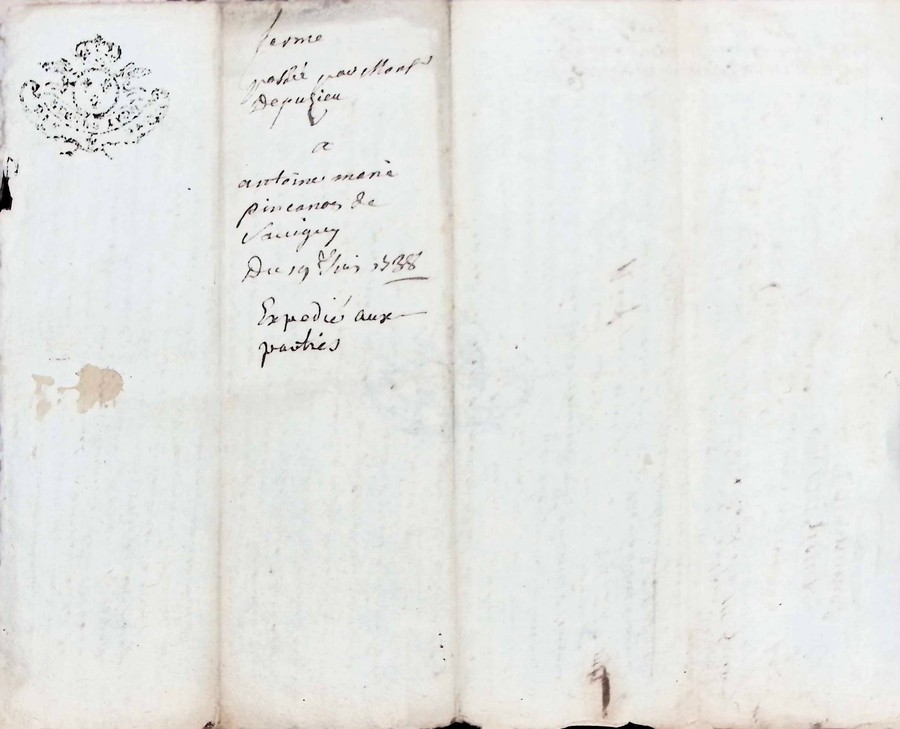 ferme
passé par Mons.r
Depuzieu
a
antoine marie
pincanon de
Savigny
Du 19 1738
Expedié aux
parties